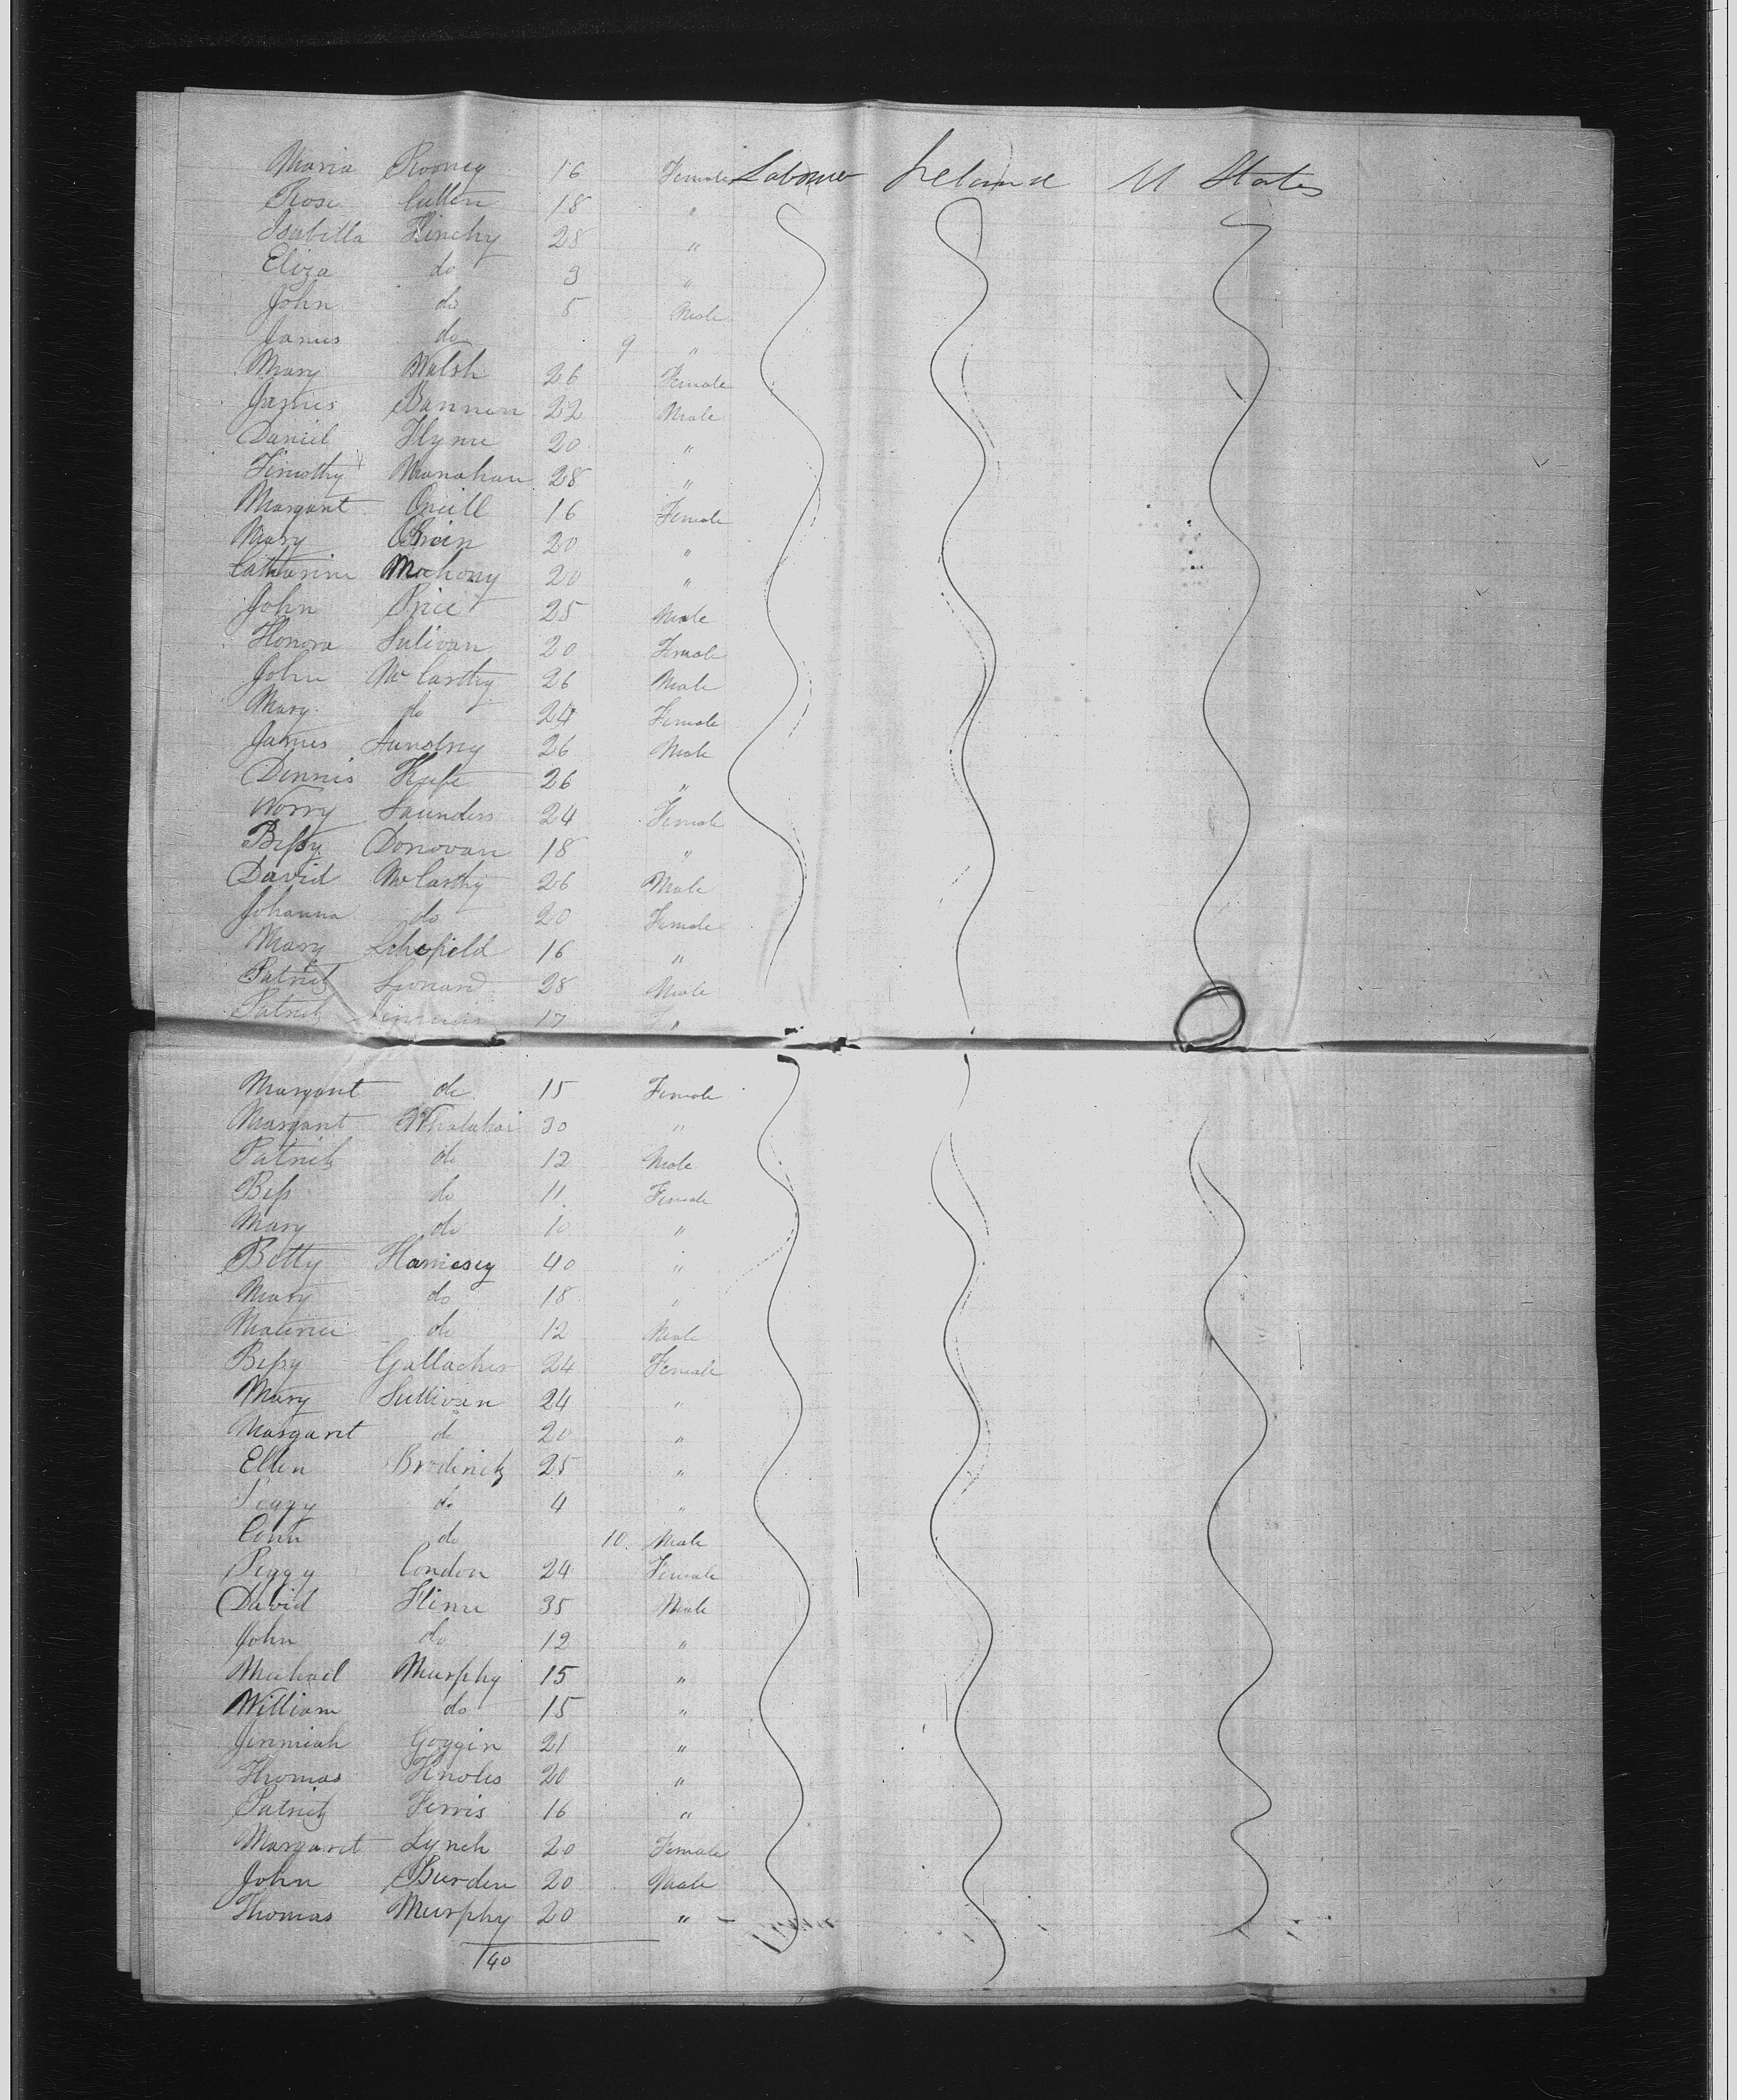 Maria Rooney 16 Female Labourer Ireland U States
Rose Cullen 18 "
Isabella Hinchy 28 "
Eliza do 3 "
John do 5 Male
James do 9 "
Mary Walsh 26 Female
James Bannon 22 Male
Daniel Flynn 20 "
Timothy Monahan 28 "
Margaret Oneill 16 Female
Mary OBrien 20 "
Catharine Mochony 20 "
John Price 25 Male
Honora Sulivan 20 Female
John McCarthy 26 Male
Mary do 24 Female
James 26 Male
Dennis Keefe 26 "
Norry Saunders 24 Female
Bessy Donovan 18 "
David McCarthy 26 Male
Johanna do 20 Female
Mary Schofield 16 "
Patrick Leonard 28 Male
Patrick 17 "
Margaret do 15 Female
Margaret 30 "
Patrick do 12 Male
Bess do 11 Female
Mary do 10 "
Betty Hamesey 40 "
Mary do 18 "
do 12 Male
Bessy Gallacher 24 Female
Mary Sullivan 24 "
Margaret do 20 "
Ellen Broderick 25 "
Peggy do 4 "
Conn do 10 Male
Peggy Condon 24 Female
David Flinn 35 Male
John do 12 "
Michael Murphy 15 "
William do 15 "
Jeremiah Goggin 21 "
Thomas Knoles 20 "
Patrick Ferris 16 "
Margaret Lynch 20 Female
John Burden 20 Male
Thomas Murphy 20 "
140